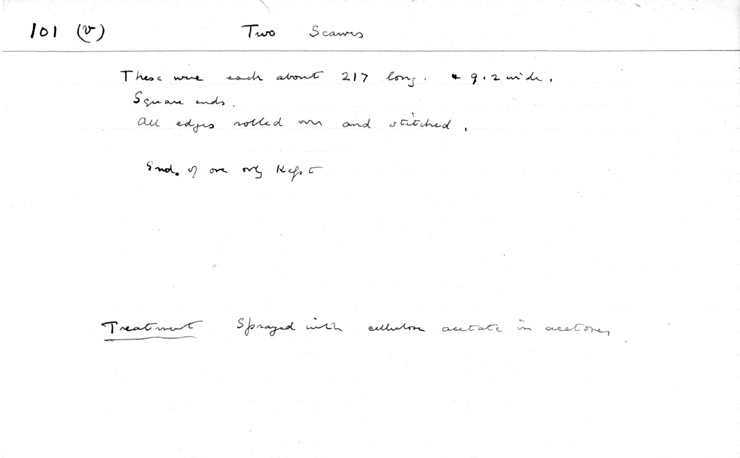 101 (v) Two Scarves
These were each about 217 long. & 9.2 wide.
Square ends.
All edges rolled over and stitched.
End. of one only kept
Treatment Sprayed with cellulose acetate in acetone,